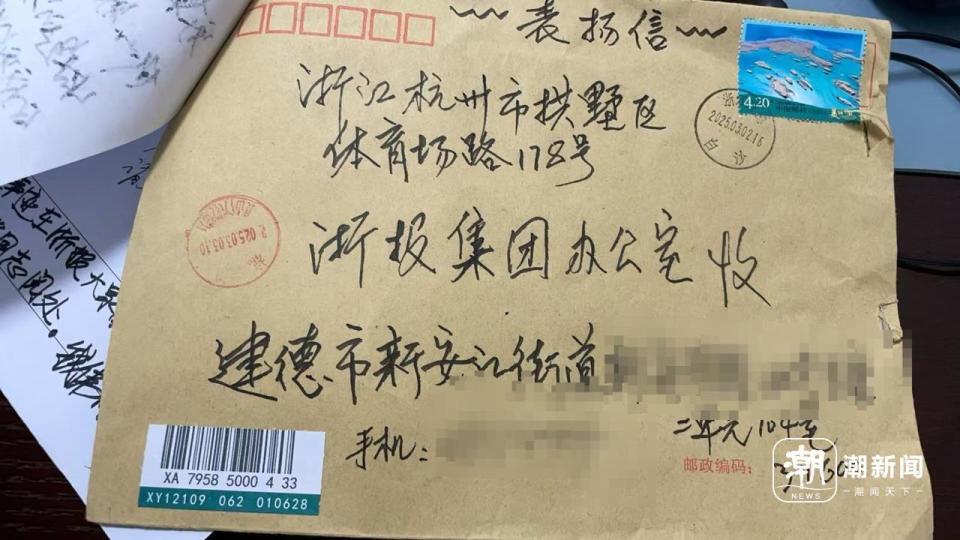 表扬信
4.20
浙江杭州市拱墅区
2025.03.02.16
白沙
体育场路178号
2025.03.03.10
浙报集团办公室 收
建德市新安江街道
二单元104室
手机:
邮政编码:
XA 7958 5000 4 33
XY12109 062 010628
潮
NEWS
潮新闻
潮闻天下